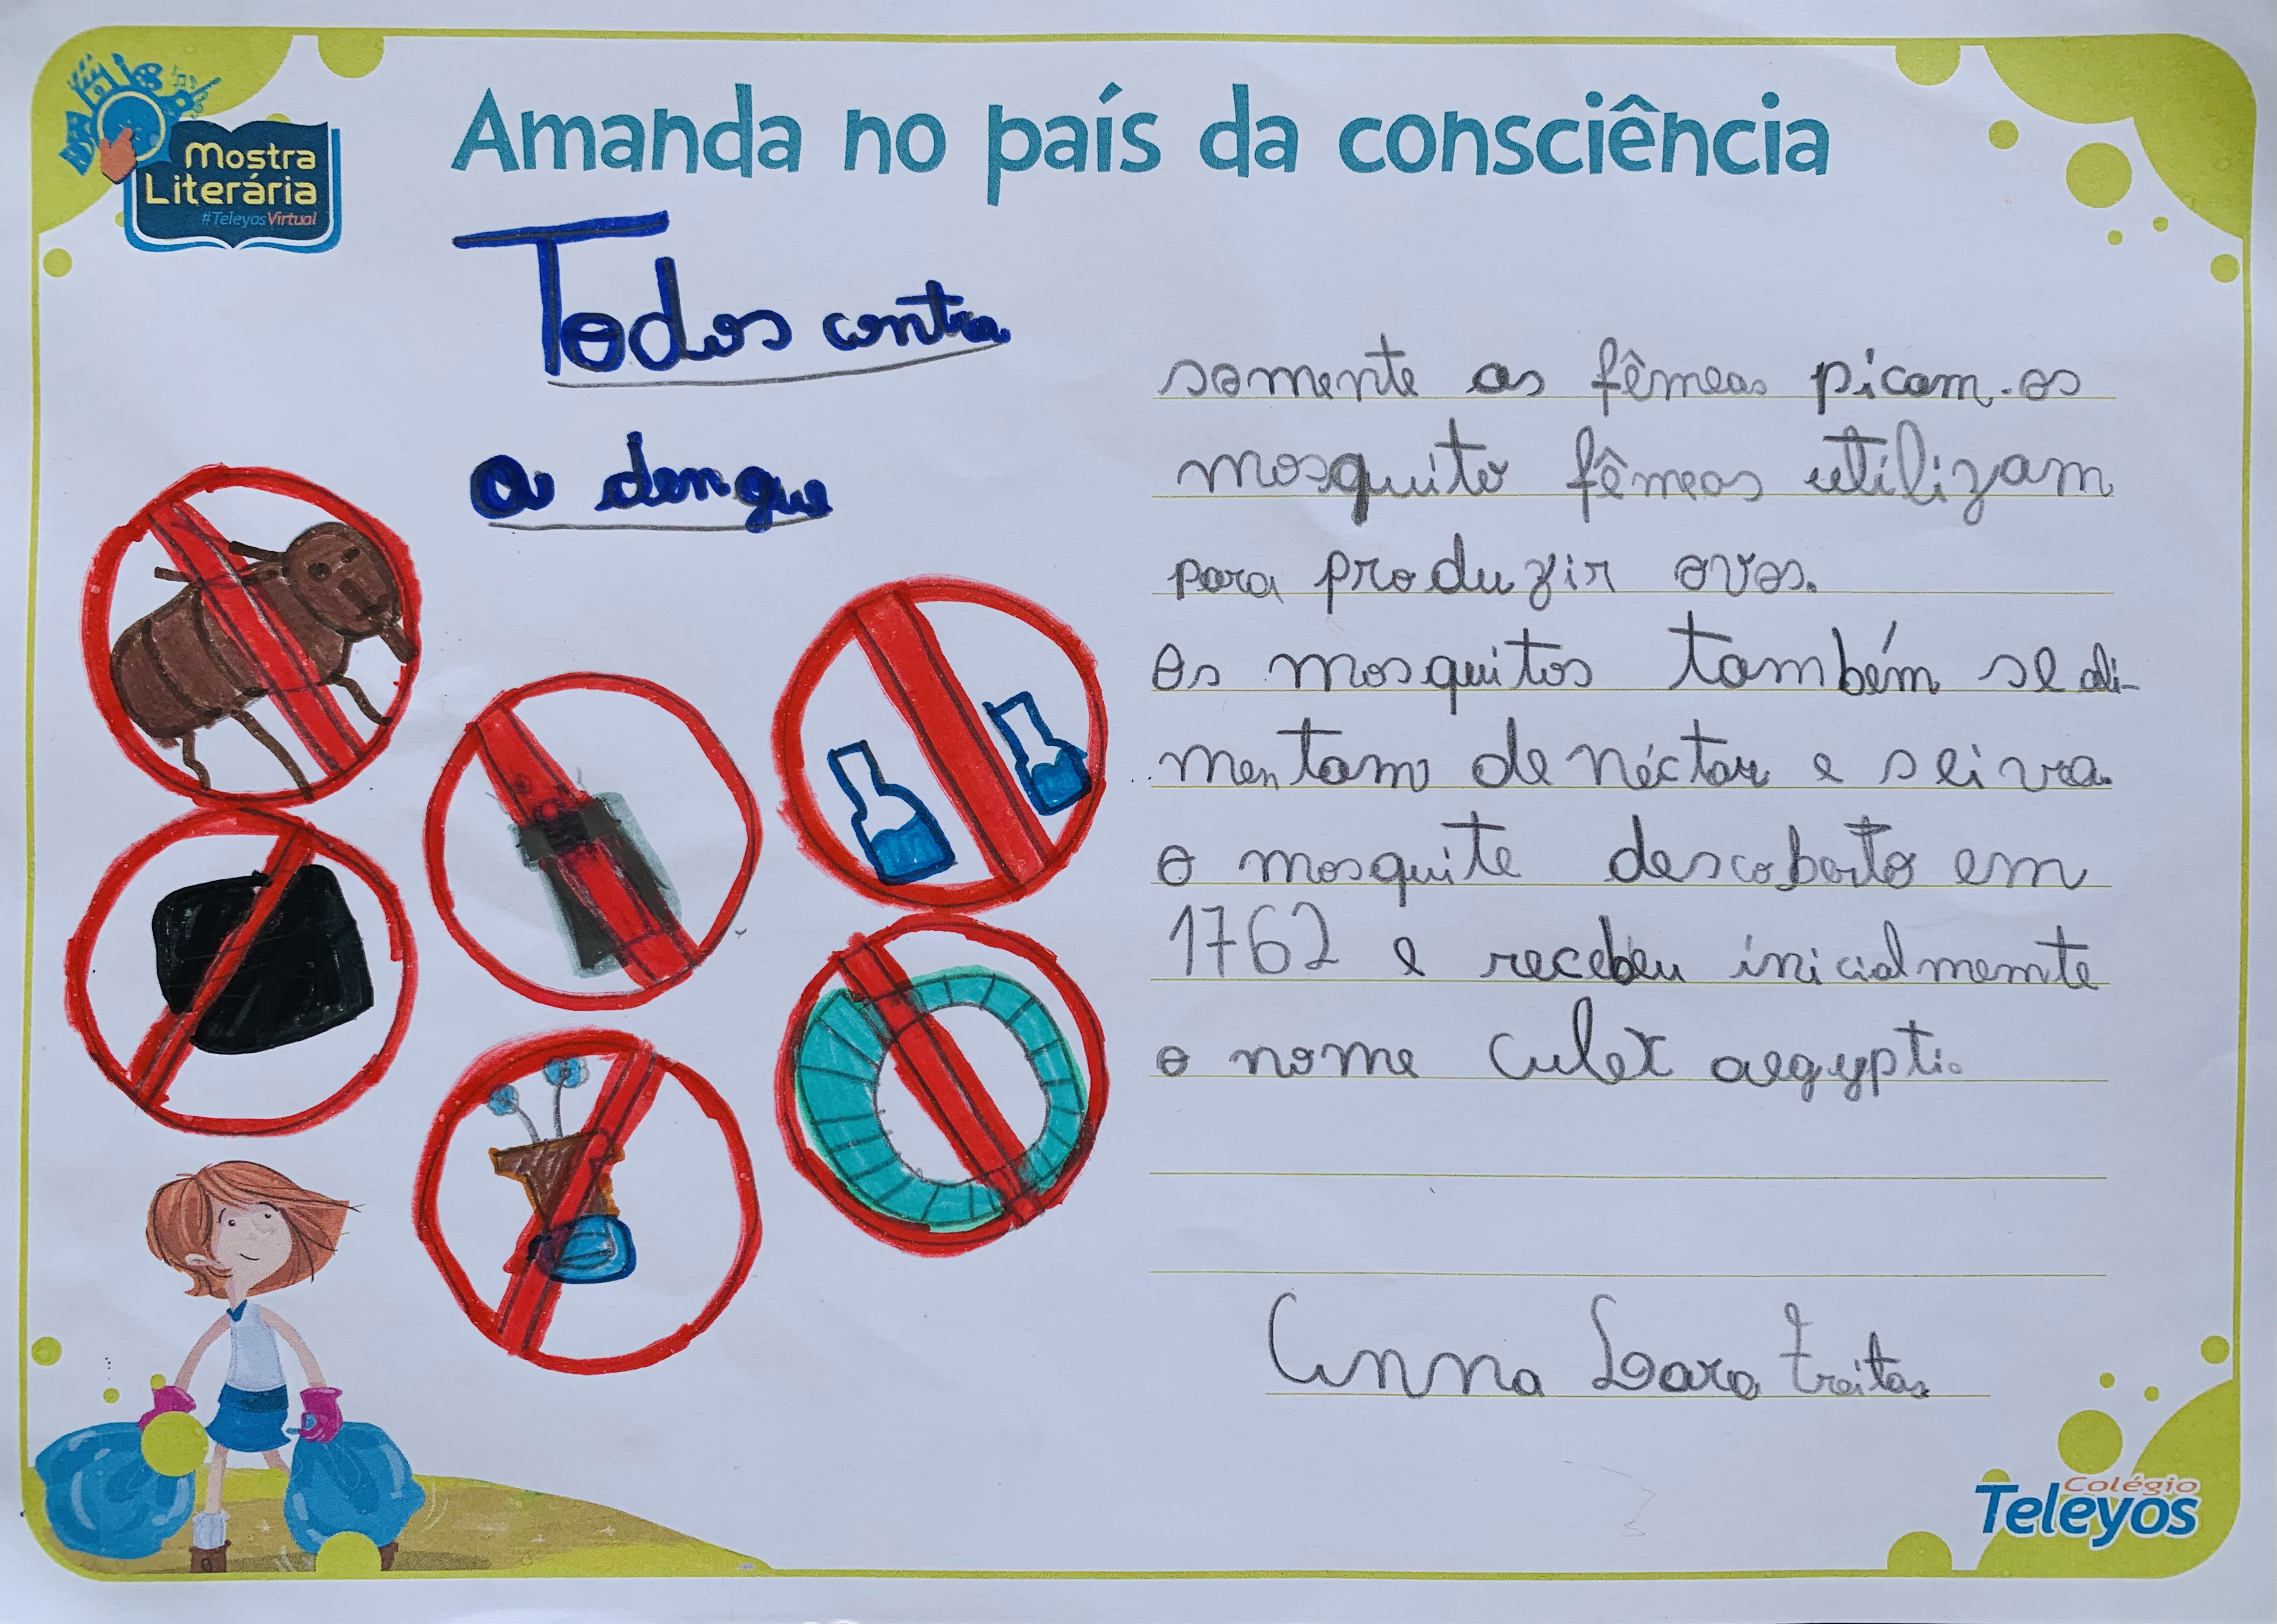 Amanda no país da consciência
Mostra
Literária
#TeleyosVirtual
Todos contra
a dengue
somente as fêmeas picam. os
mosquito fêmeas utilizam
para produzir ovos.
Os mosquitos também se ali-
mentam de néctar e seiva.
o mosquite descoberto em
1762 e recebeu inicialmemte
o nome Culex aegypti.
Anna Lara Freitas
Colégio
Teleyos